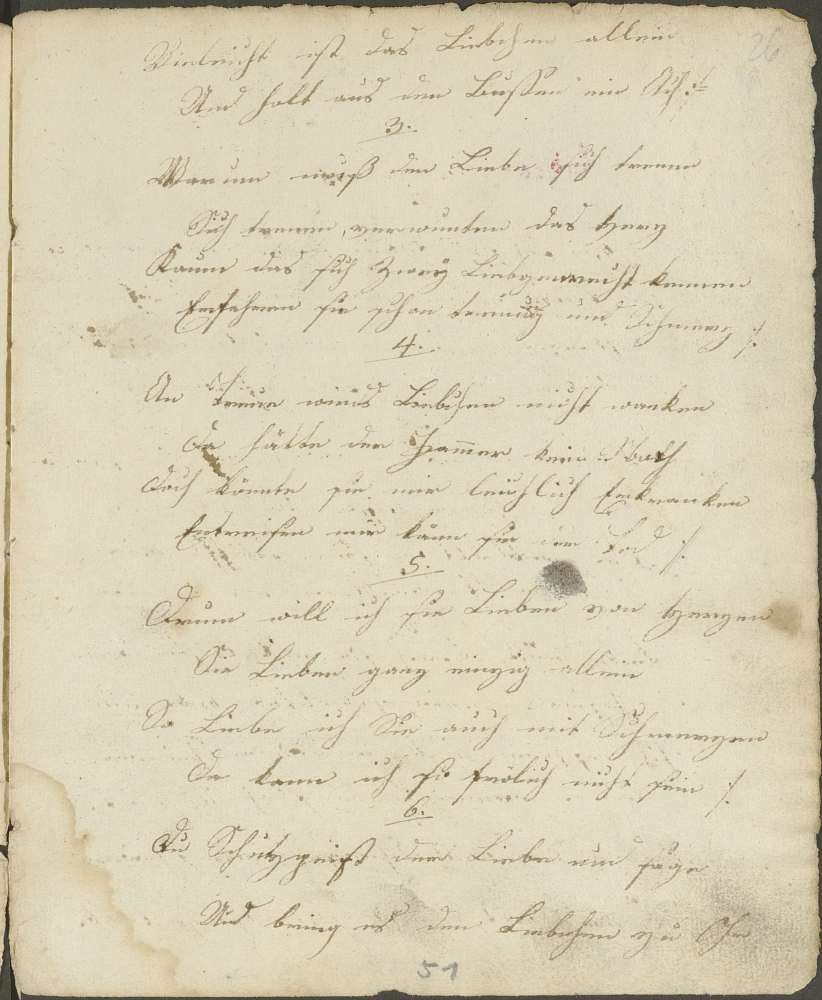 26
Vieleicht ist das Liebchen allein
Und holt aus den Bussen ein Ach :/:
3.
Warum muß den Liebe sich trenen
Sich trenen, verwunten das Herz
Kaum das sich Zwey Liebgemacht kennen
Erfahren sie schon trenung und Schmerz :/:
4.
An Treue wird Liebchen nicht wanken
Da hätte der Jammer kein
Doch könnte sie mir leichlich Erkranken
Entreisen mir kann sie der Tod :/:
5.
Drum will ich sie Lieben von Herzen
Sie Lieben ganz einzig allein
So Liebe ich Sie auch mit Schmerzen
Da kann ich so frölich nicht sein :/:
6.
Du Schutzgeist der Liebe und sage
Und bring es den Liebchen zu Ohr
51